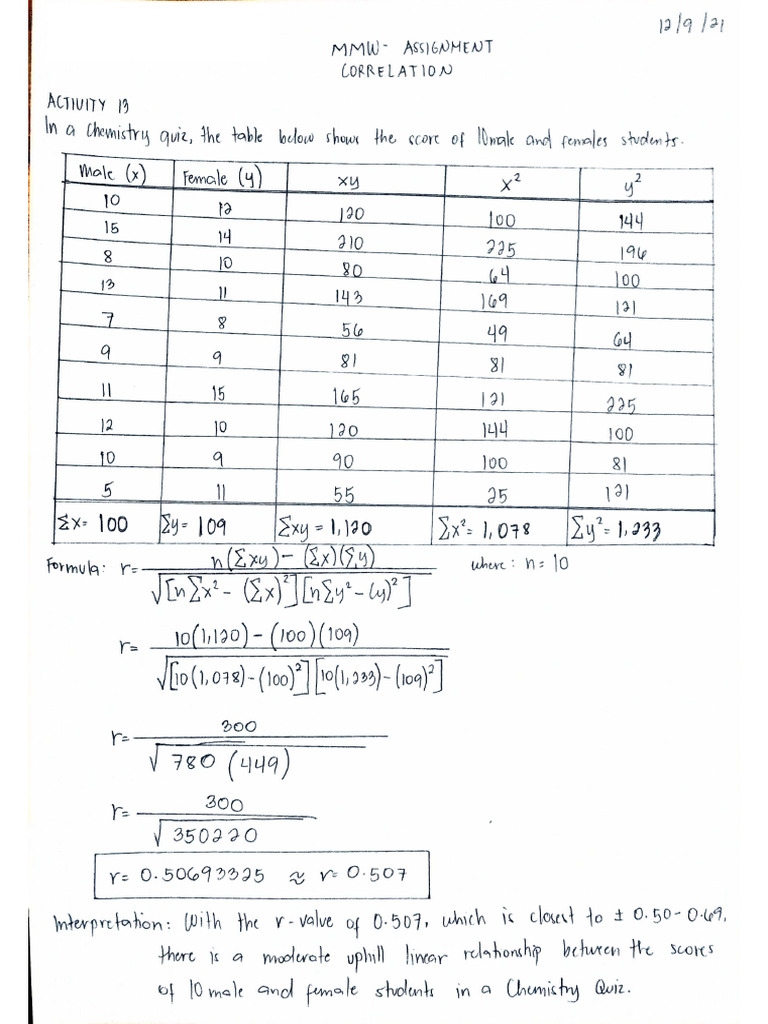 12/9/21
MMW- ASSIGNMENT
CORRELATION
ACTIVITY 13
In a Chemistry quiz, the table below shows the score of 10 male and females students.
Male (x) Female (y) xy x² y²
10 12 120 100 144
15 14 210 225 196
8 10 80 64 100
13 11 143 169 121
7 8 56 49 64
9 9 81 81 81
11 15 165 121 225
12 10 120 144 100
10 9 90 100 81
5 11 55 25 121
Σx= 100 Σy= 109 Σxy = 1,120 Σx²= 1,078 Σy²= 1,233
Formula: r= n(Σxy) - (Σx)(Σy) / √[nΣx² - (Σx)²][nΣy² - (y)²] where: n= 10
r= 10(1,120) - (100)(109) / √[10(1,078)-(100)²][10(1,233)-(109)²]
r= 300 / √780 (449)
r= 300 / √350220
r= 0.50693325 ≈ r= 0.507
Interpretation: With the r-value of 0.507, which is closest to ± 0.50-0.69,
there is a moderate uphill linear relationship between the scores
of 10 male and female students in a Chemistry Quiz.